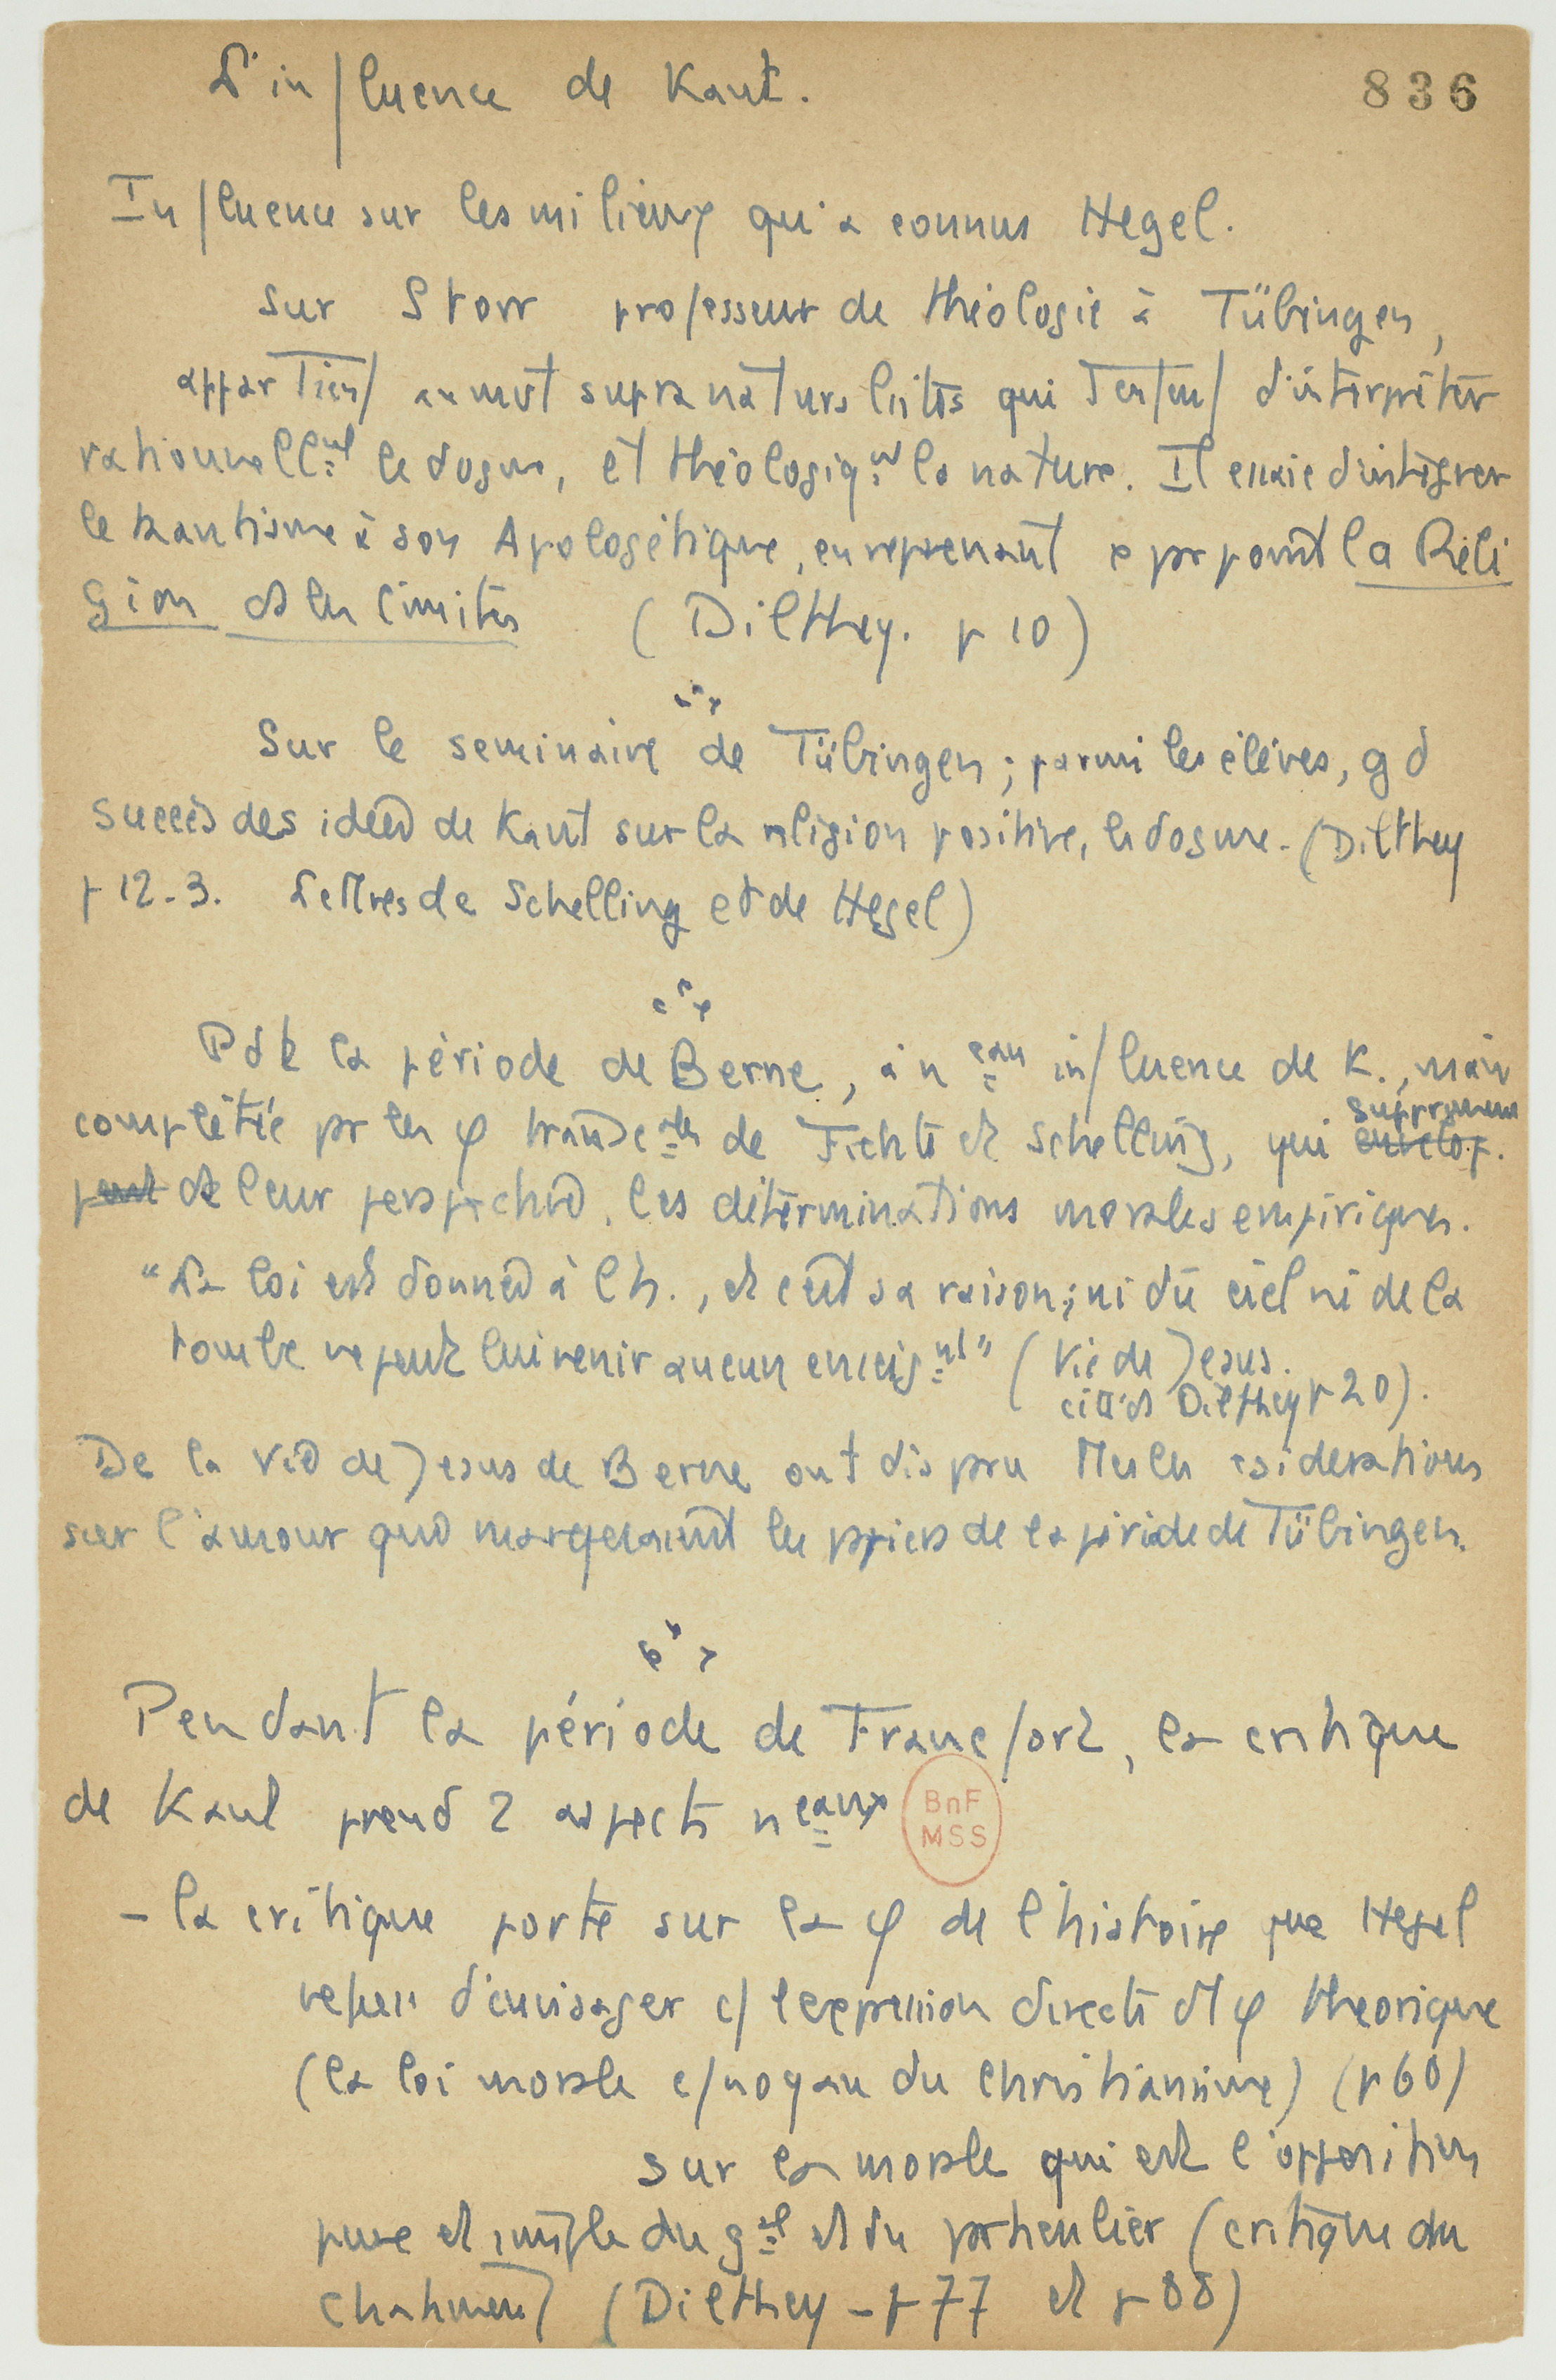 L'influence de Kant.
836
Influence sur les milieux qu'a connus Hegel.
sur Storr professeur de théologie à Tübingen,
appartient au mvt supranaturaliste qui tentent d'interpréter
rationnellnt le dogme, et théologiqnt la nature. Il essaie d'intégrer
le kantisme à son Apologétique, en reprenant pr point la Reli
gion ds les limites (Dilthey. p 10)
Sur le seminaire de Tübingen ; parmi les élèves, gd
succès des idées de Kant sur la religion positive, le dogme. (Dilthey
p 12-3. Lettres de Schelling et de Hegel)
Pdt la période de Berne, à neau influence de K., mais
complétée pr les φ transc.ales de Fichte et Schelling, qui envelop- suppriment
pent ds leur perspective, les déterminations morales empiriques.
"La loi est donnée à l'h., et c'est sa raison ; ni du ciel ni de la
tombe ne peut lui venir aucun enseignt" (Vie de Jesus.
cité ds Dilthey p 20).
De la vie de Jesus de Berne ont disparu ttes les csiderations
sur l'amour que marquaient les papiers de la période de Tübingen.
Pendant la période de Francfort, la critique
de Kant prend 2 aspects neaux
BnF
MSS
- la critique porte sur la φ de l'histoire que Hegel
refuse d'envisager c/ l'expression directe d'1 φ theorique
(la loi morale c/ noyau du christianisme) (p 60)
sur la morale qui est l'opposition
pure et simple du gal et du particulier (critique du
chatiment) (Dilthey - p 77 et p 88)